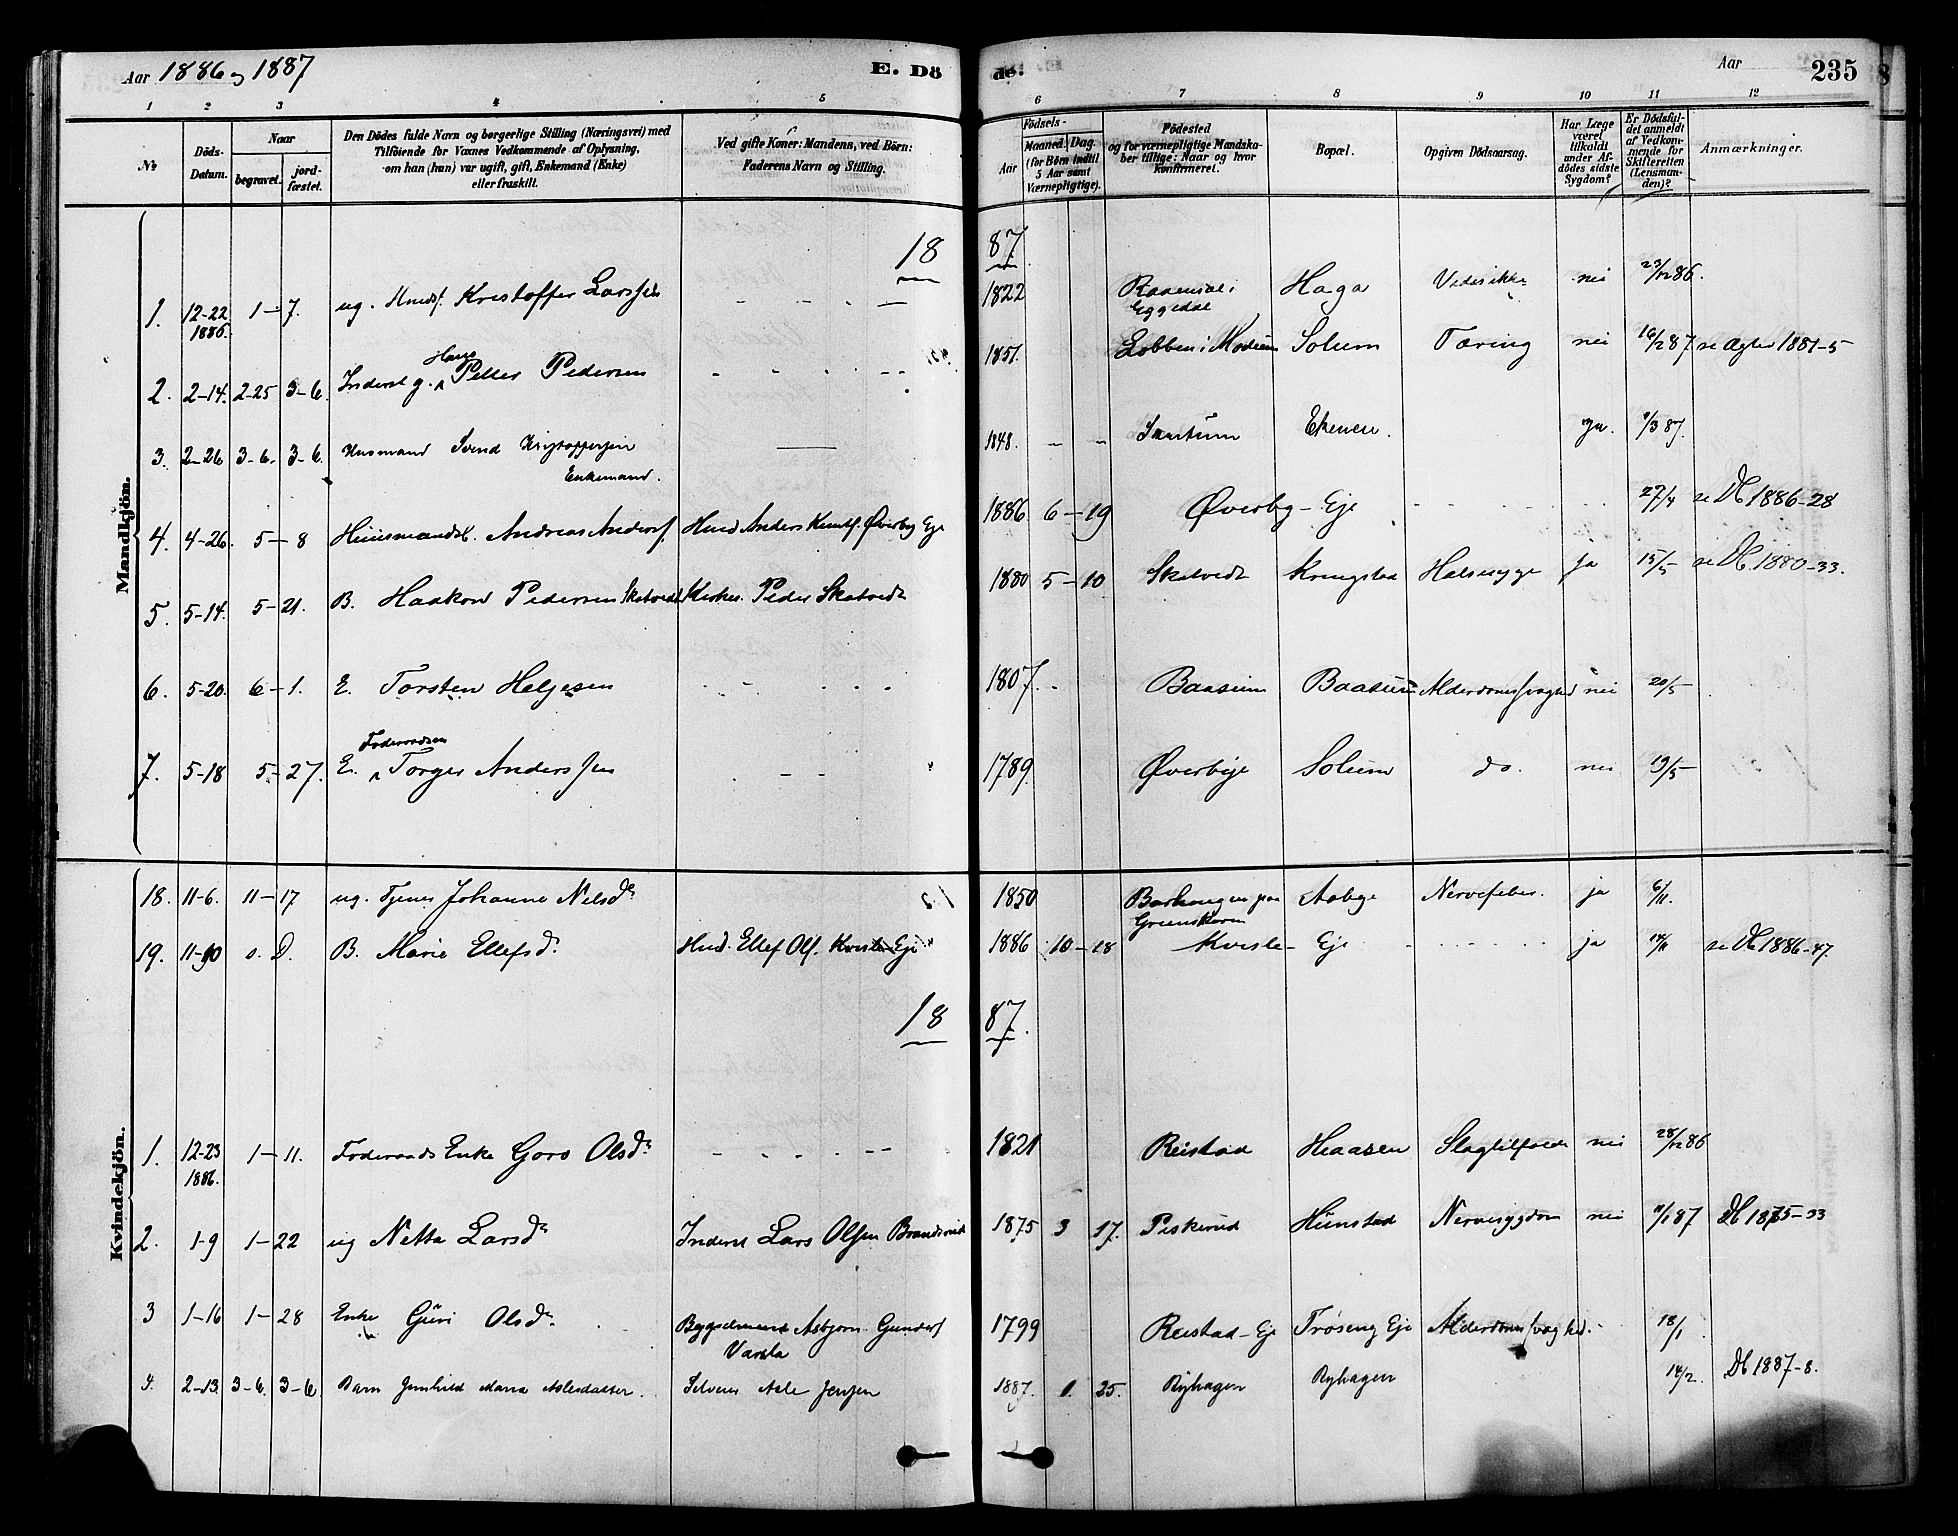 Aar 1886 og 1887
E. Dö
de.
Aar
235
1 2 3 4 5 6 7 8 9 10 11 12
No
Döds-Datum.
Naar
begravet. jordfæstet.
Den Dödes fulde Navn og borgerlige Stilling (Næringsvei) med
Tilföiende for Voxnes Vedkommende af Oplysning,
om han (hun) var ugift, gift, Enkemand (Enke)
eller fraskilt.
Ved gifte Koner: Mandens, ved Börn:
Faderens Navn og Stilling.
Födsels-
Aar
Maaned. Dag.
(for Børn indtil
5 Aar samt
Værnepligtige).
Födested
og for værnepligtige Mandskaber
tillige: Naar og hvor
konfirmeret.
Bopæl.
Opgiven Dödsaarsag.
Har Læge
været
tilkaldt
under Afdödes
sidste
Sygdom?
Er Dödsfaldet
anmeldt
af Vedkommende
for
Skifteretten
(Lensmanden)?
Anmærkninger.
Mandkjön.
18 87
1. 12-22 1886. 1-7. ug. Kristoffer Larssen 1822 Eggedal Haga nei 23/12 86.
2. 2-14. 2-25 3-6. Inderst g. Hans Petter Pedersen 1851. i Modum Solum Tæring nei 16/2 87 se Ægtev 1881-5
3. 2-26 3-6. 3-6. Husmand Svend Kristoffersen Enkemand. 1848. ja. 1/3 87.
4. 4-26. 5-8 Andreas Anders. Anders Knuts. Øverby Eje 1886 6-19 Øverby-Eje 27/4 se Db 1886-28
5. 5-14. 5-21. B. Haakon Pedersen Skatvedt Peder Skatvedt 1880 5-10 Skatvedt Kringstad Halssyge ja 15/5 se Db 1880-33.
6. 5-20. 6-1. E. Torsten Helgesen 1807. Baasum Baasum Alderdomssvaghed nei 20/5
7. 5-18 5-27. E. Foderaadsm Torger Anderssen 1789. Øverbye Solum do. nei 19/5
Kvindekjön.
18. 11-6. 11-17 ug. Tjenes Johanne Nilsdr 1850 Aabye Nervefeber. ja 6/11.
19. 11-10 s. D. B. Marie Ellefsdr Ellef Ols. Kvisle Eje 1886 10-18 Kvisle-Eje ja 14/11 se Db 1886-47.
18 87
1. 12-23 1886. 1-11. Foderaads Enke Goro Olsdr 1821 Reistad Haasen Slagtilfælde nei 28/12 86
2. 1-9 1-22 ug Netta Larsdr Inderst Lars Olsen 1875 3 17. Piskerud Hunstad Nervesygdom nei 11/1 87 Db 1875-33
3 1-16 1-28 Enke Guri Olsdr Bygselmand Asbjørn Gunders Varsla 1799 Reistad-Eje Trøseng Eje Alderdomssvaghed. 18/1
4. 2-13. 3-6. 3-6 Barn Gunhild Maria Aslesdatter. Selveier Asle Jensen 1887. 1. 25. Ryhagen Ryhagen 14/2 Db 1887-8.